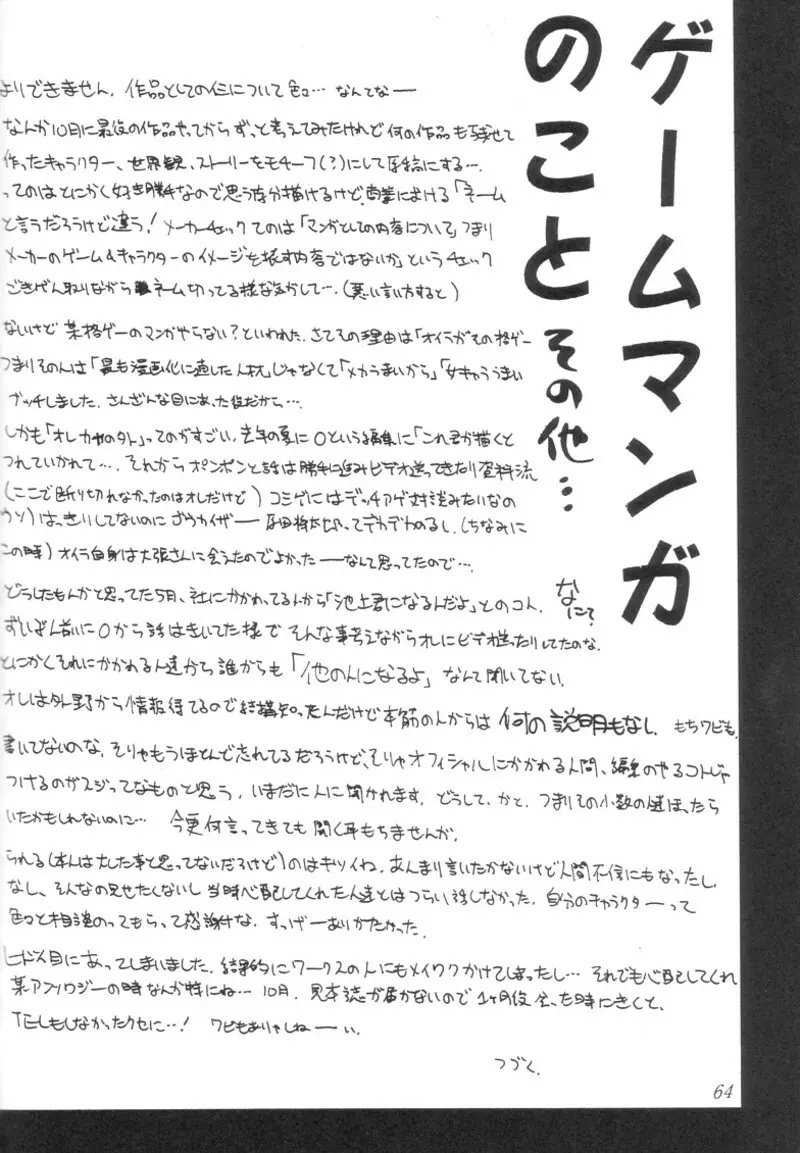 ゲームマンガ
のこと その他…
よりできません。作品としての仁について色々… なんてなー
なんか10月に最後の作品やってからずっと考えてみたけれど何の作品も残せて
作ったキャラクター、世界観、ストーリーをモチーフ(?)にして原稿にする…。
ってのはとにかく好き勝手なので思う存分描けるけど商業における「ネーム
と言うだろうけど違う! メーカーチェックてのは「マンガとしての内容について」つまり
メーカーのゲーム&キャラクターのイメージを壊す内容ではないか」というチェック
ごきげん取りながらネーム切ってる様な気がして…。(悪い言い方すると)
ないけど某格ゲーのマンガやらない?といわれた。さてその理由は「オイラがその格ゲー
つまりその人は「最も漫画化に適した人材」じゃなくて「メカうまいから」「女キャラうまい
ブッチしました。さんざんな目にあった後だから…。
しかも「オレ カヤのソト」ってのがすごい。去年の夏にOという編集に「これ君が描くと
つれていかれて…。それからポンポンと話は勝手に進みビデオ送ってきたり資料流
(ここで断り切れなかったのはオレだけど)コミゲにはデッチアゲ対談みたいなの
ウソ)はっきりしてないのにゴウカイザー 原田将太郎ってデカデカのるし。(ちなみに
この時)オイラ自身は大張さんに会えたのでよかったーなんて思ってたので…。
どうしたもんかと思ってた5月、社にかかわってる人から「池上君になるんだよ」とのコト。なにで?
ずいぶん前にOから話はきいてた様で そんな事考えながらオレにビデオ送ったりしてたのな。
とにかくそれにかかわる人達から誰からも「他の人になるよ」なんて聞いてない。
オレは外野から情報得てるので結構知ってたんだけど本筋の人からは何の説明もなし。もちワビも。
書いてないのな。そりゃもうほとんど忘れてるだろうけど、そりゃオフィシャルにかかわる人間、編集のやるコトじゃ
つけるのがスジってなものと思う。いまだに人に聞かれます。どうして、かと。つまりその小数の人達ほったら
いたかもしれないのに… 今更何言ってきても聞く耳もちませんが。
られる(本人は大した事と思ってないだろうけど)のはキツイね。あんまり言いたかないけど人間不信にもなったし
なし、そんなの見せたくないし当時心配してくれた人達とはつらい話しなかった。自分のキャラクターって
色々と相談のってもらって感謝な。すっげーありがたかった。
ヒドス目にあってしまいました。結果的にワークスの人にもメイワクかけてしまったし… それでも心配してくれ
某アンソロジーの時なんか特にね… 10月。見本誌が届かないので1ヶ月後会った時にきくと、
TELもしなかったクセに…! ワビもありゃしねーい。
つづく。
64